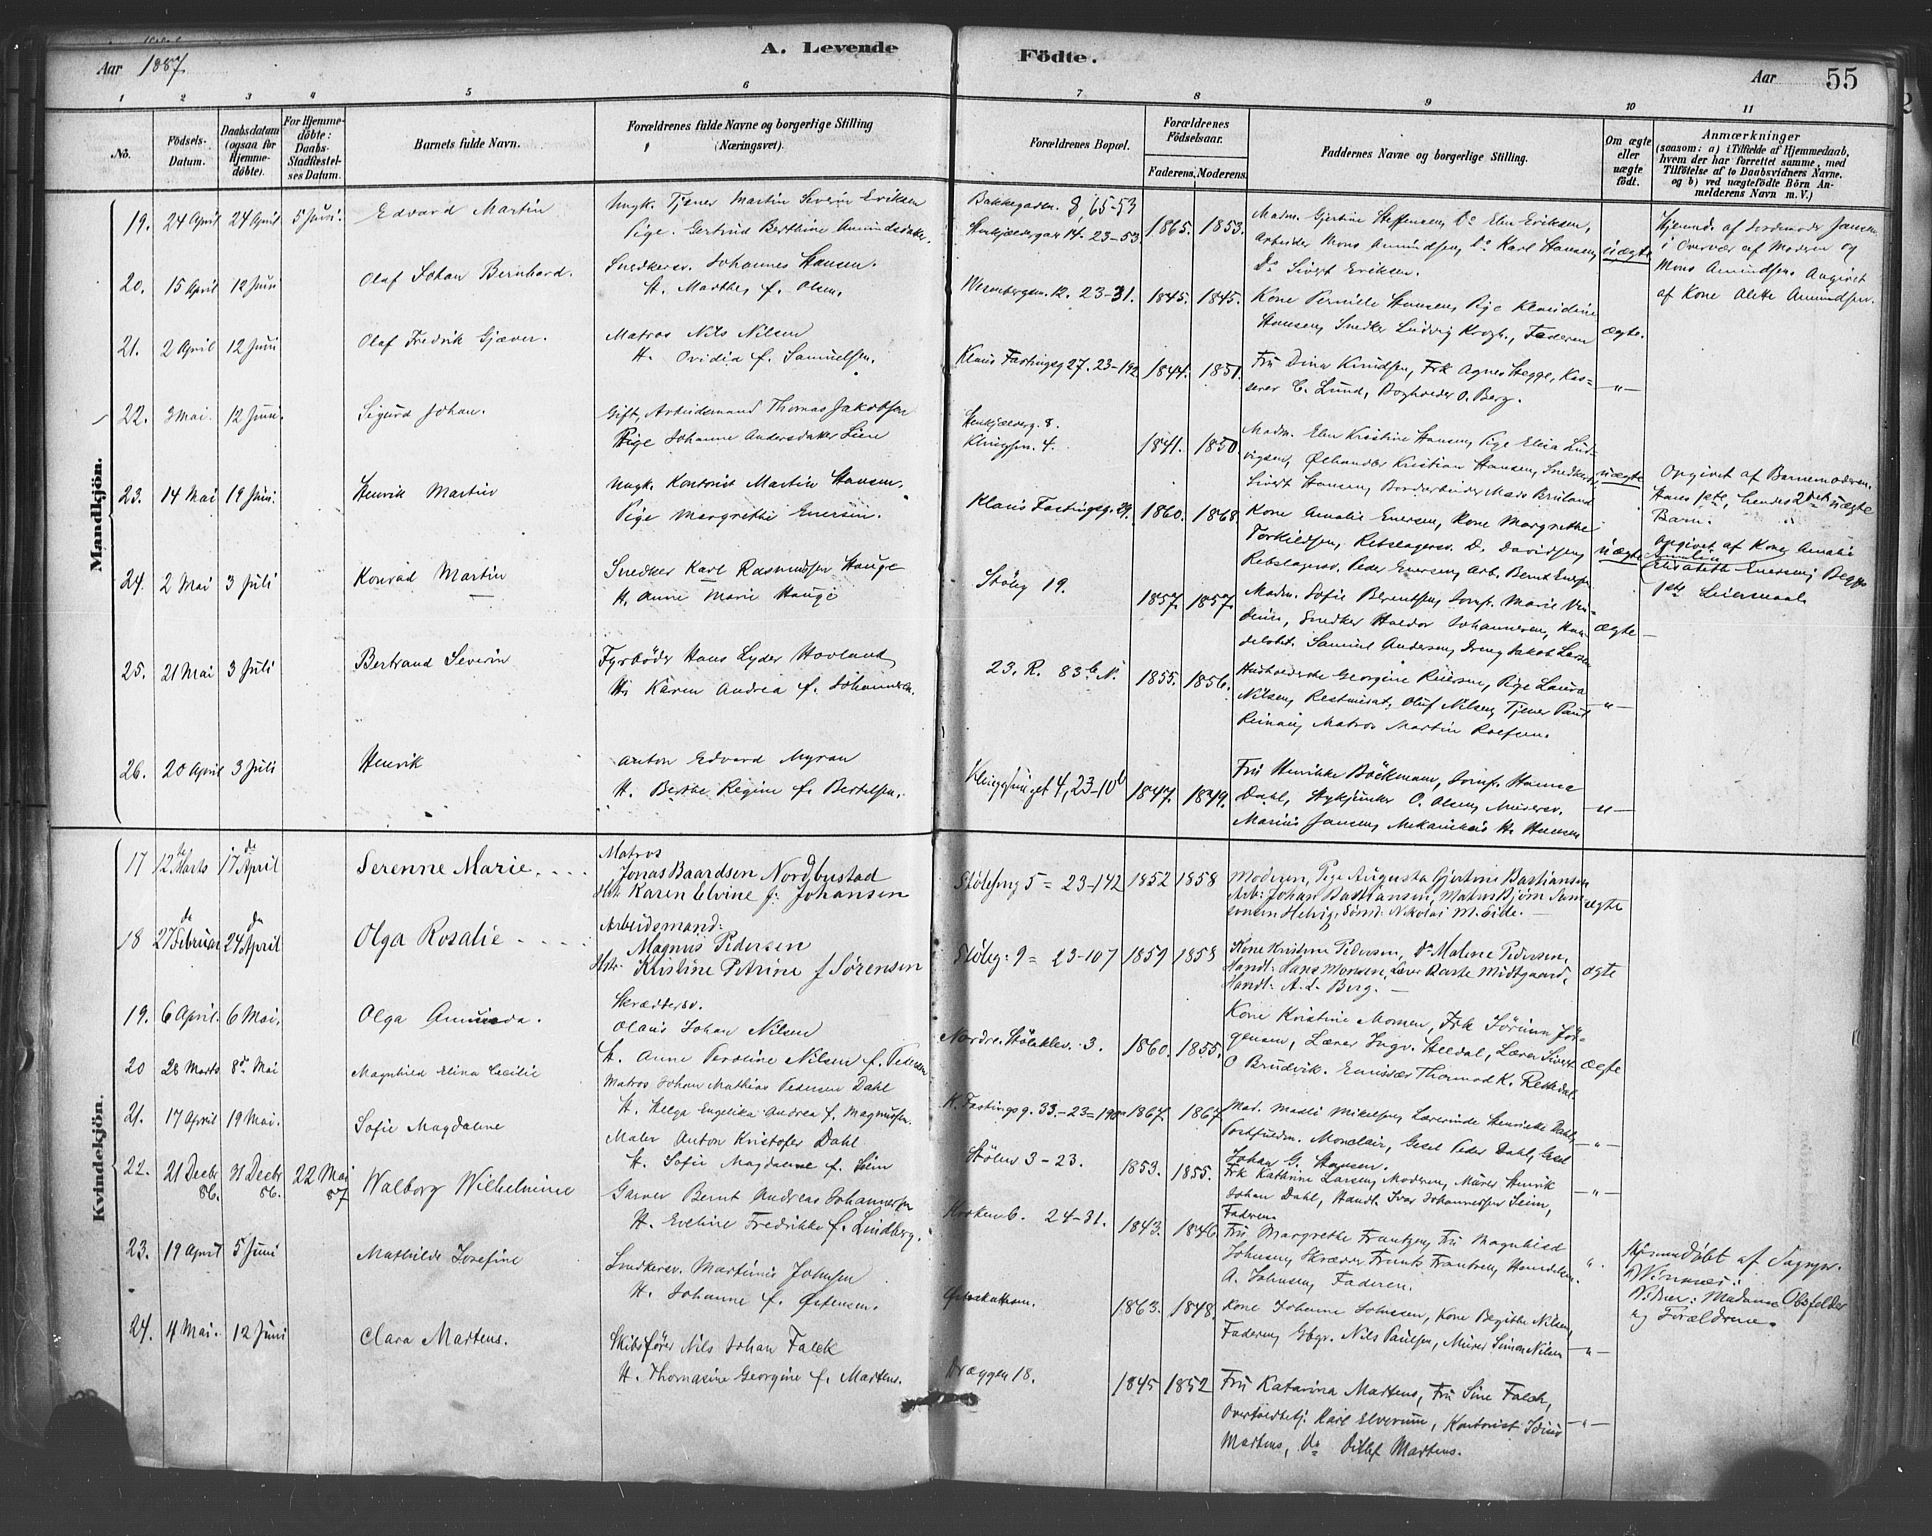 A. Levende Födte.
Aar 1887.
Aar 55
1 2 3 4 5 6 7 8 9 10 11
No.
Födsels-Datum.
Daabsdatum (ogsaa for Hjemme-döbte).
For Hjemme-döbte: Daabs-Stadfæstel-ses Datum.
Barnets fulde Navn.
Forældrenes fulde Navne og borgerlige Stilling (Næringsvei).
Forældrenes Bopæl.
Forældrenes Födselsaar.
Faderens. Moderens.
Faddernes Navne og borgerlige Stilling.
Om ægte eller uægte födt.
Anmærkninger
(saasom: a) i Tilfælde af Hjemmedaab, hvem der har forrettet samme, med Tilföielse af to Daabsvidners Navne. og b) ved uægtefödte Börn An-melderens Navn m. V.)
Mandkjön.
19. 24 April 24 April 5 Juni. Edvard Martin
Ungk. Tjener Martin Severin Eriksen
Pige. Gertrud Berthine Amundsdatter.
Bakkegaden. 8, 65-53
14. 23-53. 1865. 1853.
Madm. Gjertine Steffensen, Do Elen Eriksen,
Arbeider Mons Amundsen, Do Karl Hansen,
Do Sivert Eriksen.
uægte
Hjemmed. af Jordemoder Jansen
i Overvær af Moderen og
Mons Amundsen. Angivet
af Kone Alette Amundsen.
20. 15 April 12 Juni Olaf Johan Bernhard.
Snedkersv. Johannes Hansen.
H. Marthe f. Olsen.
12. 23-31. 1845. 1845.
Kone Pernille Hansen, Pige Klausdine
Hansen, Snedker Ludvig Krogh, Faderen
ægte.
21. 2 April 12 Juni Olaf Fredrik Gjæver.
Matros Nils Nilsen
H. Ovidia f. Samuelsen.
Klaus Fastingsg 27. 23-192 1844. 1851.
Fru Dina Knudsen, Frk Agnes Hegge, Kas-
serer C. Lund, Bogholder O. Berg.
-"-
22. 3 Mai. 12 Juni. Sigurd Johan.
Gift, Arbeidsmand Thomas Jakobsen
Pige Johanne Andersdatter Lien
8.
4. 1841. 1850.
Madm. Elen Kristine Hansen, Pige Elisa Lud-
vigsen, Ølhandler Kristian Hansen, Snedkersv.
Sivert Hansen,
uægte
Opgivet af Barnemoderen.
Hans 1ste, hendes 2det uægte
Barn.
23. 14 Mai 19 Juni. Henrik Martin
Ungk. Kontorist Martin Hansen.
Pige Margrethe Enersen.
Klaus Fastingsg. 29. 1860. 1868.
Kone Amalie Enersen, Kone Margrethe
Torkildsen, Rebslagersv. D. Davidsen,
Rebslagersv. Peder Enersen, Arb. Bernt Enersen
uægte
Opgivet af Kone Amalie
Enersen, Begges
1ste Leiermaal.
24. 2 Mai 3 Juli Konrad Martin
Snedker Karl Rasmussen Hauge
H. Anne Marie Hauge
Støleg 19. 1857. 1857.
Madm. Sofie Berentsen, Jomf. Marie
Snedker Haldor Johannesen, Han-
delsbet. Samuel Andersen, Dreng Jakob Larsen
ægte-
25. 21 Mai 3 Juli Bertrand Severin
Fyrbøder Hans Lyder Hovland,
H. Karen Andrea f. Johannesen.
23. R. 83b N. 1855. 1856.
Husholderske Georgine Riiersen, Pige Laura
Nilsen, Restaurat. Oluf Nilsen, Tjener Paul
Matros Martin Roefsen.
-"-
26. 20 April 3 Juli Henrik
Anton Edvard Myran
H. Berthe Regine f. Bertelsen.
4, 23-10b 1847. 1849.
Fru Henrikke Böckmann, Jomf. Hanna
Dahl, Stykjunker O. Olsen, Murersv.
Marius Jansen, Mekanikus H. Hansen
-"-
Kvindekjön.
17 12de Marts 17de April Serenne Marie . . . .
Matros
Jonas Baardsen Nordbustad
Hstr Karen Elvine f: Johansen
Stølesmg 5 = 23-142 1852 1858
Moderen, Pige Augusta Gjertine Bastiansen
Arb: Johan Bastiansen, Matros Bjørn Sam
Nikolai M. Eide. -
ægte
18 27de Februar 24de April Olga Rosalie . . . .
Arbeidsmand:
Magnus Pedersen
Hstr. Kristine Petrine f Sørensen
Støleg: 9 = 23-107 1859 1858
Kone Kristine Pedersen, do Malene Pedersen,
Handl: Hans Monsen, Lærer Raste Midtgaard,
Handl: A. L. Berg. -
ægte
19. 6 April. 6 Mai. Olga Amunda.
Skræddersv.
Olaus Johan Nilsen
H. Anne Peroline Nilsen f. Pedersen
Nordre Støleklev. 3. 1860. 1855.
Kone Kristine Monsen, Frk Jørinn Jør-
gensen, Lærer Ingv. Heldal, Lærer Sivert
O Brudvik. Emissær Thormod K. Rettedal
ægte
20 28 Marts 8de Mai Magnhild Elina Cecilie
Matros Johan Mathias Pedersen Dahl
H. Helga Engelika Andrea f. Magnussen.
K. Fastingsg. 33.-23= 1867. 1867
Mad. Madli Mikelsen, Lærerinde Henrikke Dahl,
Postfuldm. Monclair, Gesel Peder Dahl, Gesel
Johan G. Hansen.
-"-
21. 17 April 19 Mai. Sofie Magdalene
Maler Anton Kristofer Dahl.
H. Sofie Magdalene f. Seim
Stølen 3-23. 1853. 1855.
Frk Kathrine Larsen, Moderen, Murer Henrik
Johan Dahl, Handl. Ivar Johannessen Seim,
Faderen
-"-
22. 21 Decbr 86. 31 Decbr 86. 22 Mai 87 Walborg Wilhelmine
Garver Bernt Andreas Johannesen
H. Eveline Fredrikke f. Lindberg.
6. 24-31. 1843. 1846.
Fru Margrethe Frantzen, Fru Magnhild
Johnsen, Skræder Frants Frantzen, Handelsm.
A. Johnsen, Faderen.
".
Hjemmedøbt af Sognepr.
Vidner: Madame Obsfelder
og Forældrene.
23. 19 April 5 Juni Mathilde Josefine
Snedkersv. Martinus Johnsen
H. Johanne f. Østensen.
1863. 1848.
Kone Johanne Johnsen, Kone Begitthe Nilsen,
Faderen, Gbgr. Nils Paulsen, Murer Simon Nilsen
-"-
24. 4 Mai. 12 Juni Clara Martens.
Skibsfører Nils Johan Falck
H. Thomasine Georgine f. Martens.
Dræggen 18. 1845 1852
Fru Katarina Martens, Fru Sine Falck,
Overtoldbetj. Karl Elverum, Kontorist
Martens, Do Ditlef Martens.
-"-